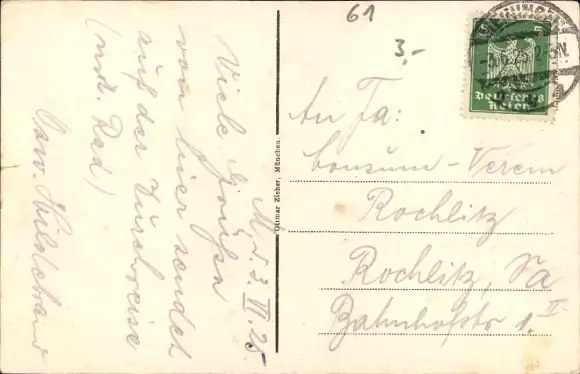 61
3,-
5 5
Deutsches
Reich
An Fa:
Consum-Verein
Rochlitz
Rochlitz, Sa
Bahnhofstr 1. II.
Ottmar Zieher, München
M, d. 3. VI. 25.
Viele Grüße
von hier sendet
auf der Durchreise
(mit Rad)
Osw. Hildebrand